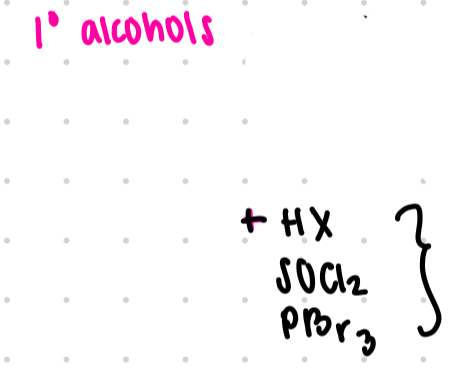 1° alcohols
+ HX
SOCl₂
PBr₃